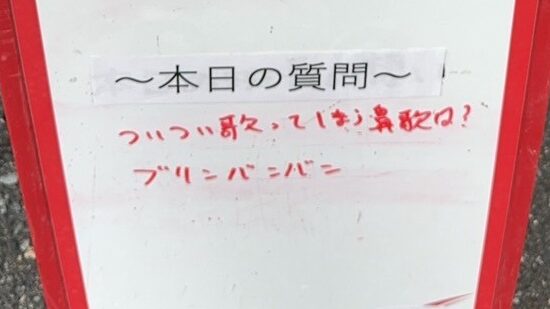 ～本日の質問～
ついつい歌ってしまう鼻歌は?
ブリンバンバン